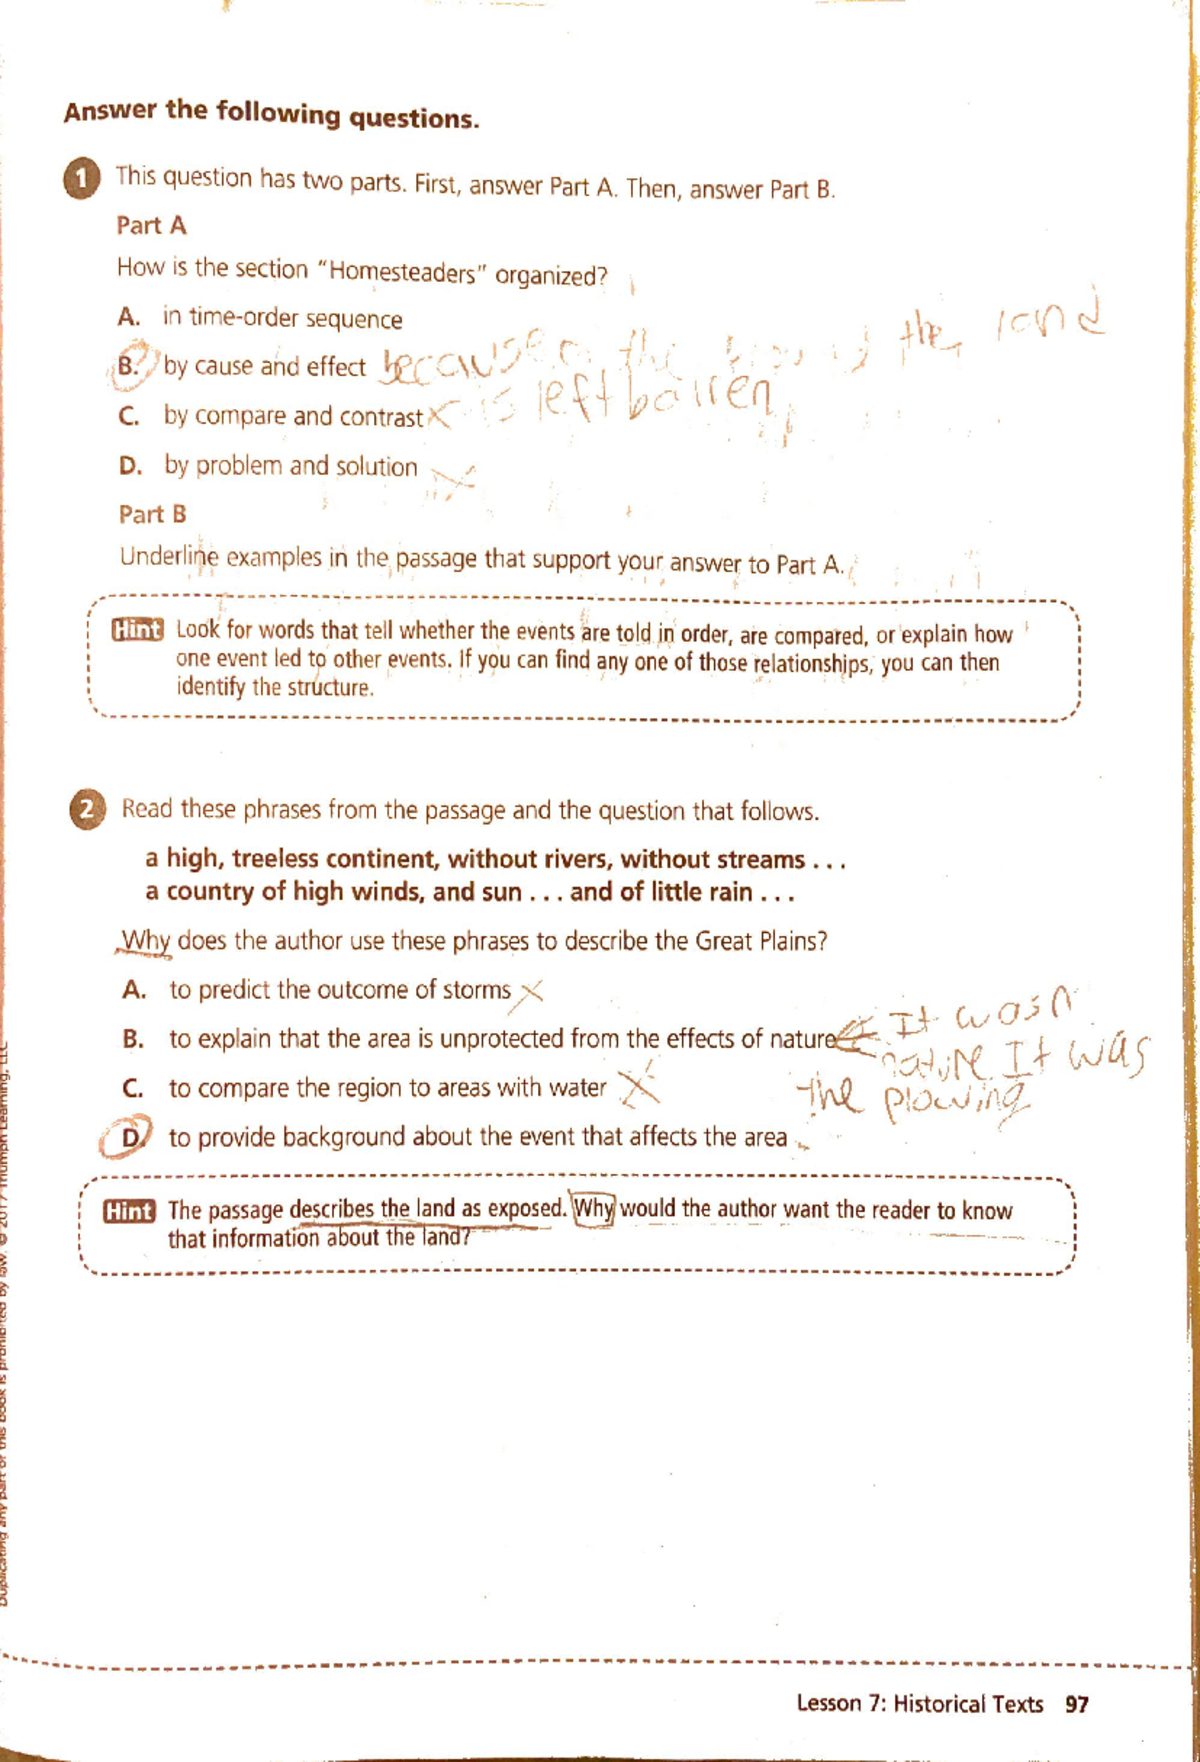 Answer the following questions.
1 This question has two parts. First, answer Part A. Then, answer Part B.
Part A
How is the section "Homesteaders" organized?
A. in time-order sequence
B. by cause and effect because the the land
is left barren
C. by compare and contrast X
D. by problem and solution X
Part B
Underline examples in the passage that support your answer to Part A.
Hint Look for words that tell whether the events are told in order, are compared, or explain how
one event led to other events. If you can find any one of those relationships, you can then
identify the structure.
2 Read these phrases from the passage and the question that follows.
a high, treeless continent, without rivers, without streams . . .
a country of high winds, and sun . . . and of little rain . . .
Why does the author use these phrases to describe the Great Plains?
A. to predict the outcome of storms X
B. to explain that the area is unprotected from the effects of nature It wasn
nature It was
the plowing
C. to compare the region to areas with water X
D. to provide background about the event that affects the area
Hint The passage describes the land as exposed. Why would the author want the reader to know
that information about the land?
Duplicating any part of this book is prohibited by law. © 2017 Triumph Learning, LLC
Lesson 7: Historical Texts 97